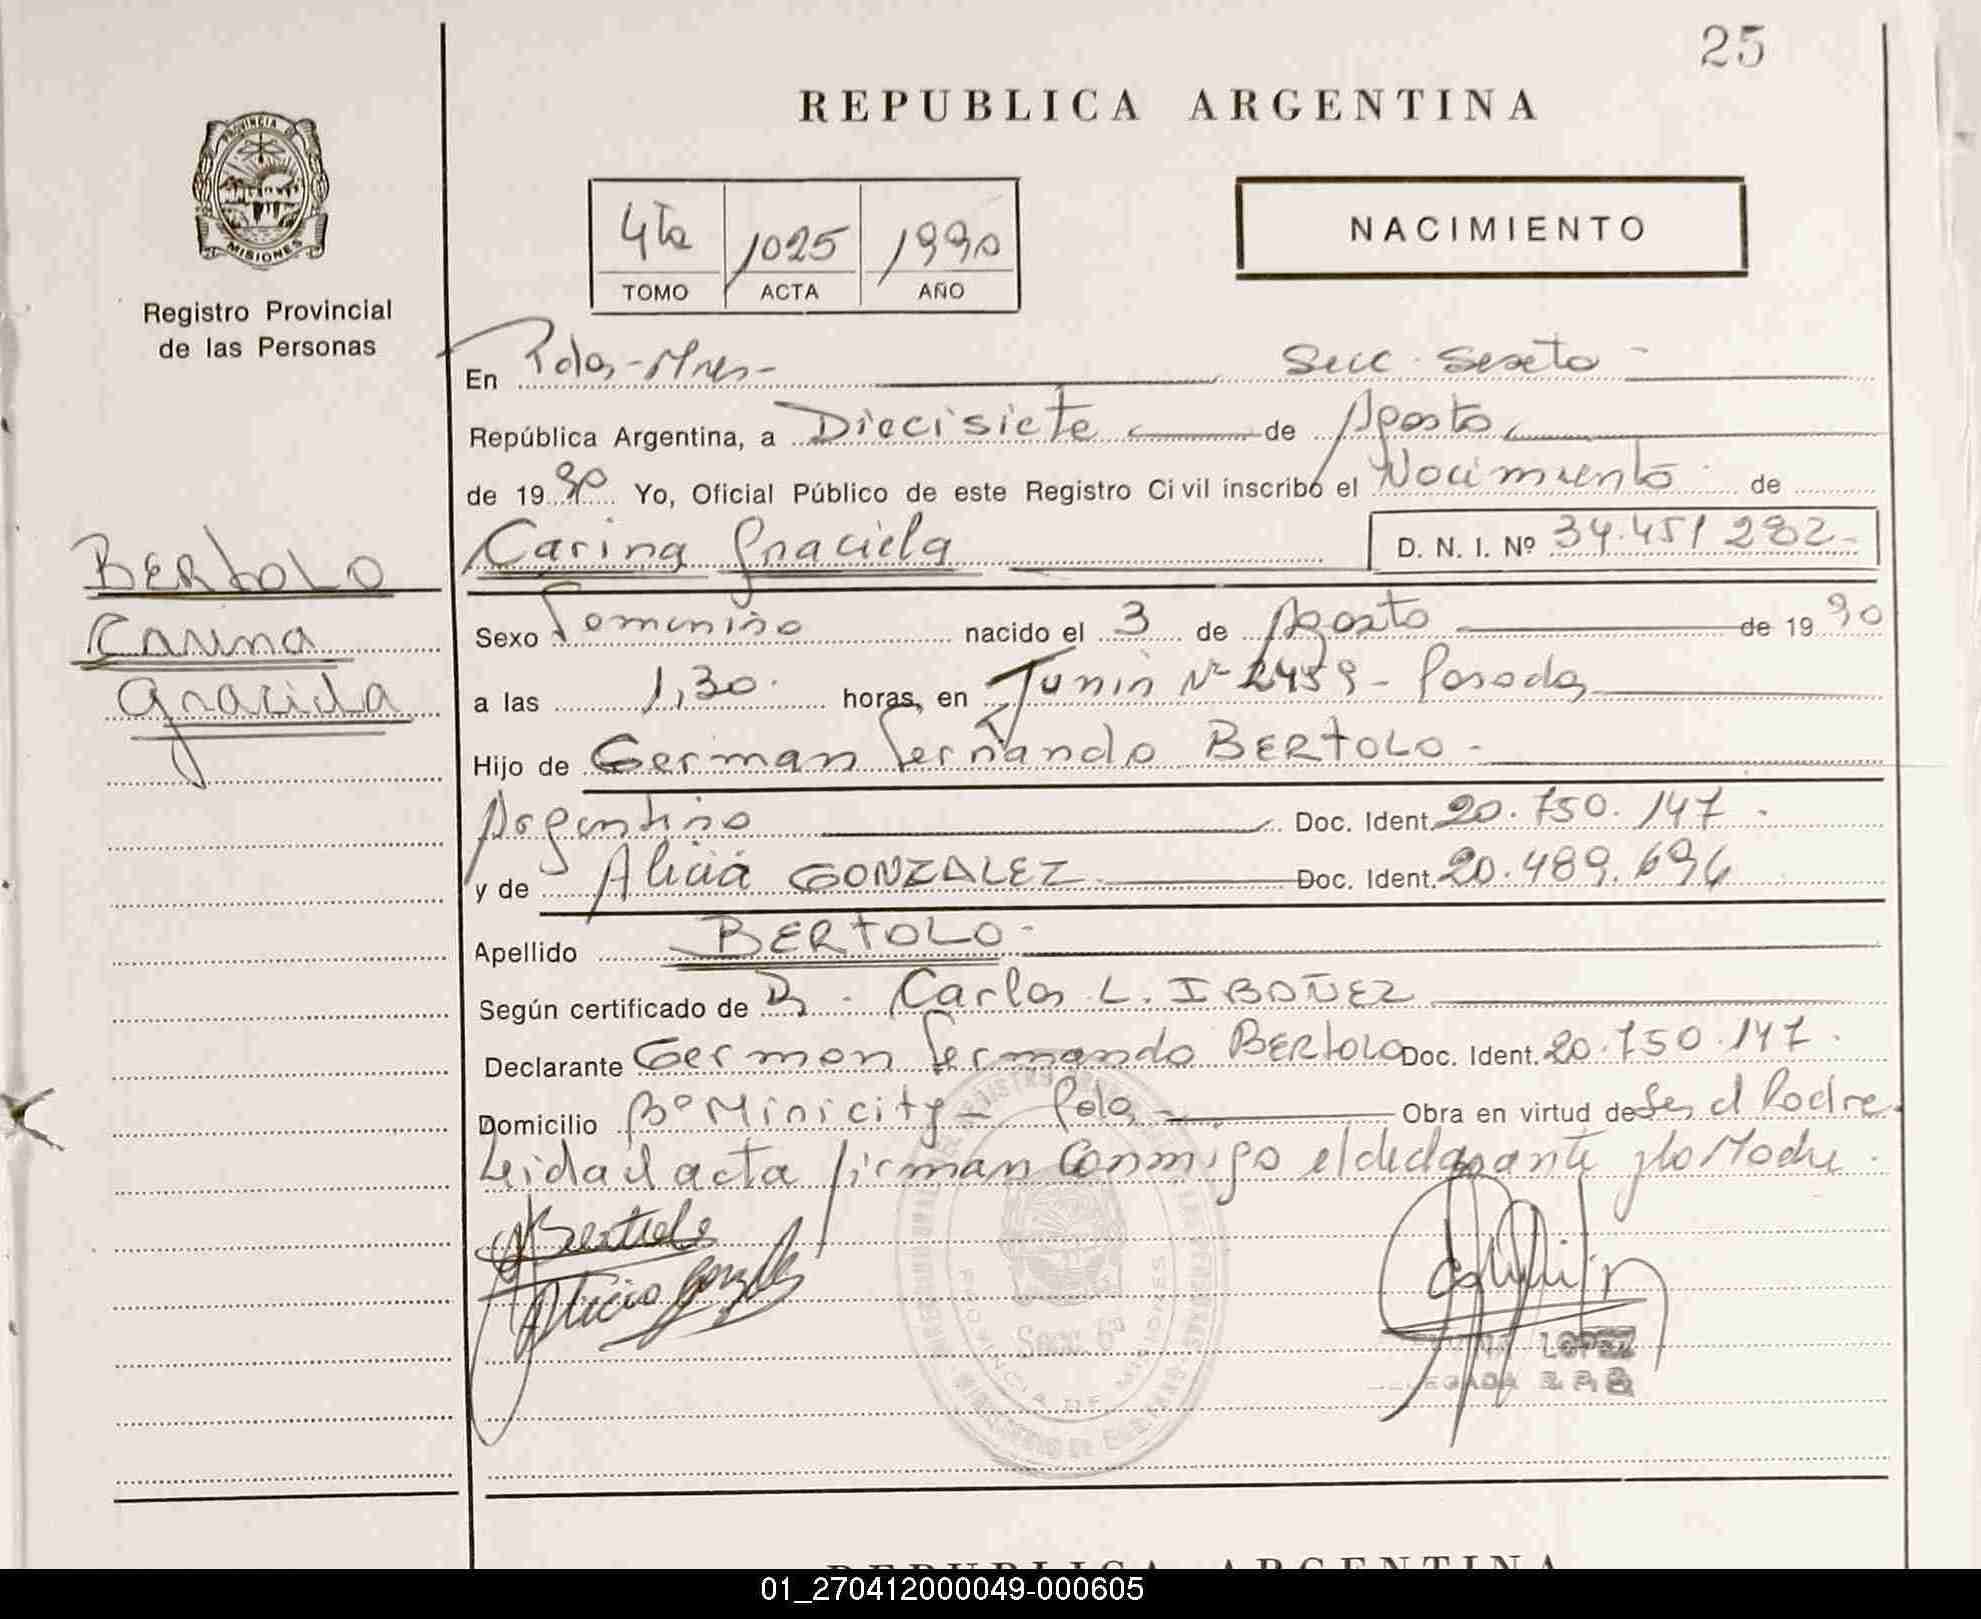 25
REPUBLICA ARGENTINA
PROVINCIA DE
MISIONES
Registro Provincial
de las Personas
4to 1025 1990
TOMO ACTA AÑO
NACIMIENTO
En Pdas-Mnes- Secc. Sexta -
República Argentina, a Diecisiete de Agosto
de 1990 Yo, Oficial Público de este Registro Civil inscribo el Nacimiento de
Carina Graciela D. N. I. Nº 34.451 282-
BERtOLO
Carina
Graciela
Sexo Femenino nacido el 3 de Agosto de 1990
a las 1,30. horas, en Junin Nº 2459 - Posadas
Hijo de German Fernando BERtOLO -
Argentino Doc. Ident. 20.750.147.
y de Alicia GONZALEZ Doc. Ident. 20.489.694
Apellido BERtOLO -
Según certificado de Dr. Carlos L. IBAÑEZ
Declarante German Fernando BERtOLO Doc. Ident. 20.750.147.
Domicilio Bº Minicity - Pdas - Obra en virtud de Ser el Padre.
Leida el acta firman Conmigo el declarante y la Madre.
Bertolo
Alicia Gonzalez
Secc. 6ª
PROVINCIA DE MISIONES
LOPEZ
REPUBLICA ARGENTINA
01_270412000049-000605